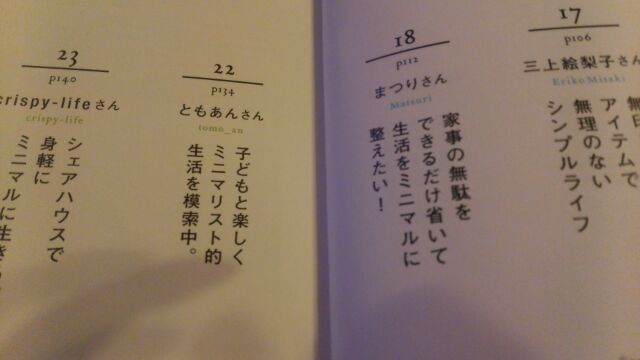 17
p106
三上絵梨子さん
Eriko Misaki
アイテムで
無理のない
シンプルライフ
18
p112
まつりさん
Matsuri
家事の無駄を
できるだけ省いて
生活をミニマルに
整えたい！
22
p134
ともあんさん
tomo_an
子どもと楽しく
ミニマリスト的
生活を模索中。
23
p140
crispy-lifeさん
crispy-life
シェアハウスで
身軽に
ミニマルに生き